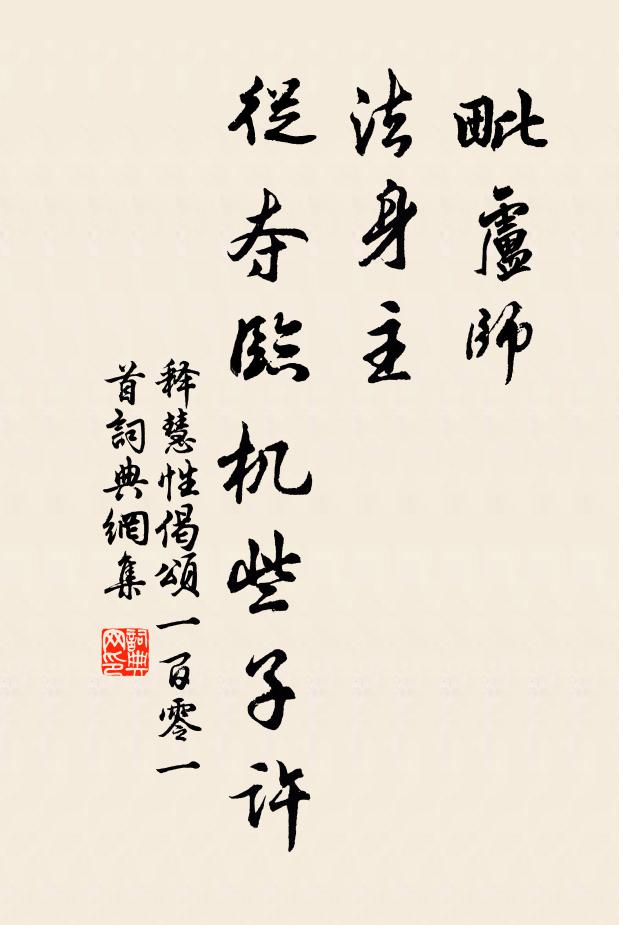 毗盧師
法身主
從夺臨机些子許
释慧性偈頌一百零一
首詞典網集
詞典网印